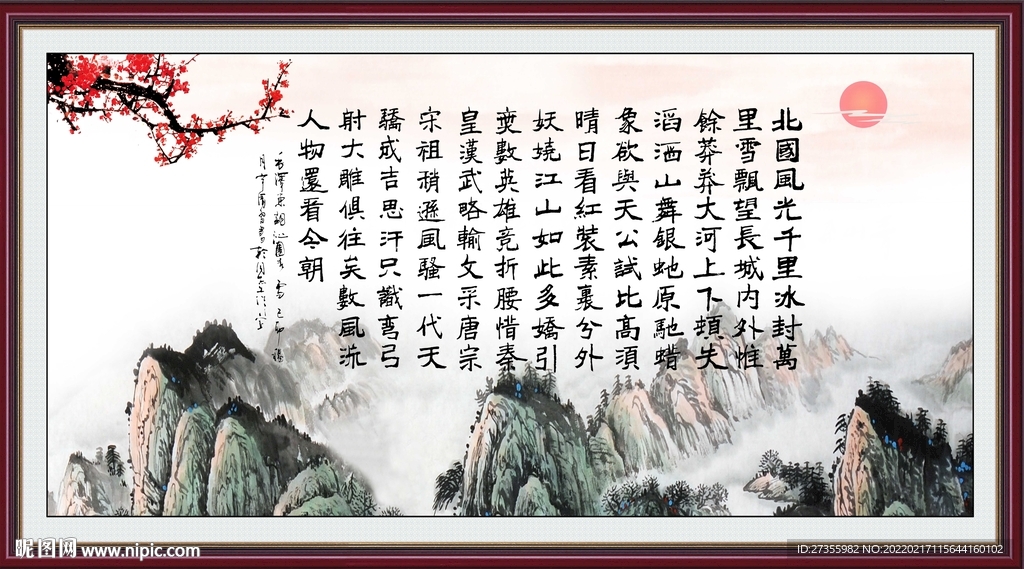 北國風光千里冰封萬
里雪飄望長城内外惟
餘莽莽大河上下頓失
滔滔山舞銀虵原馳蜡
象欲與天公試比高須
晴日看紅裝素裹分外
妖嬈江山如此多嬌引
無數英雄竞折腰惜秦
皇漢武略輸文采唐宗
宋祖稍遜風騷一代天
驕成吉思汗只識弯弓
射大雕俱往矣數風流
人物還看今朝
毛澤東詞沁園春雪
昵图网 www.nipic.com
ID:27355982 NO:20220217115644160102